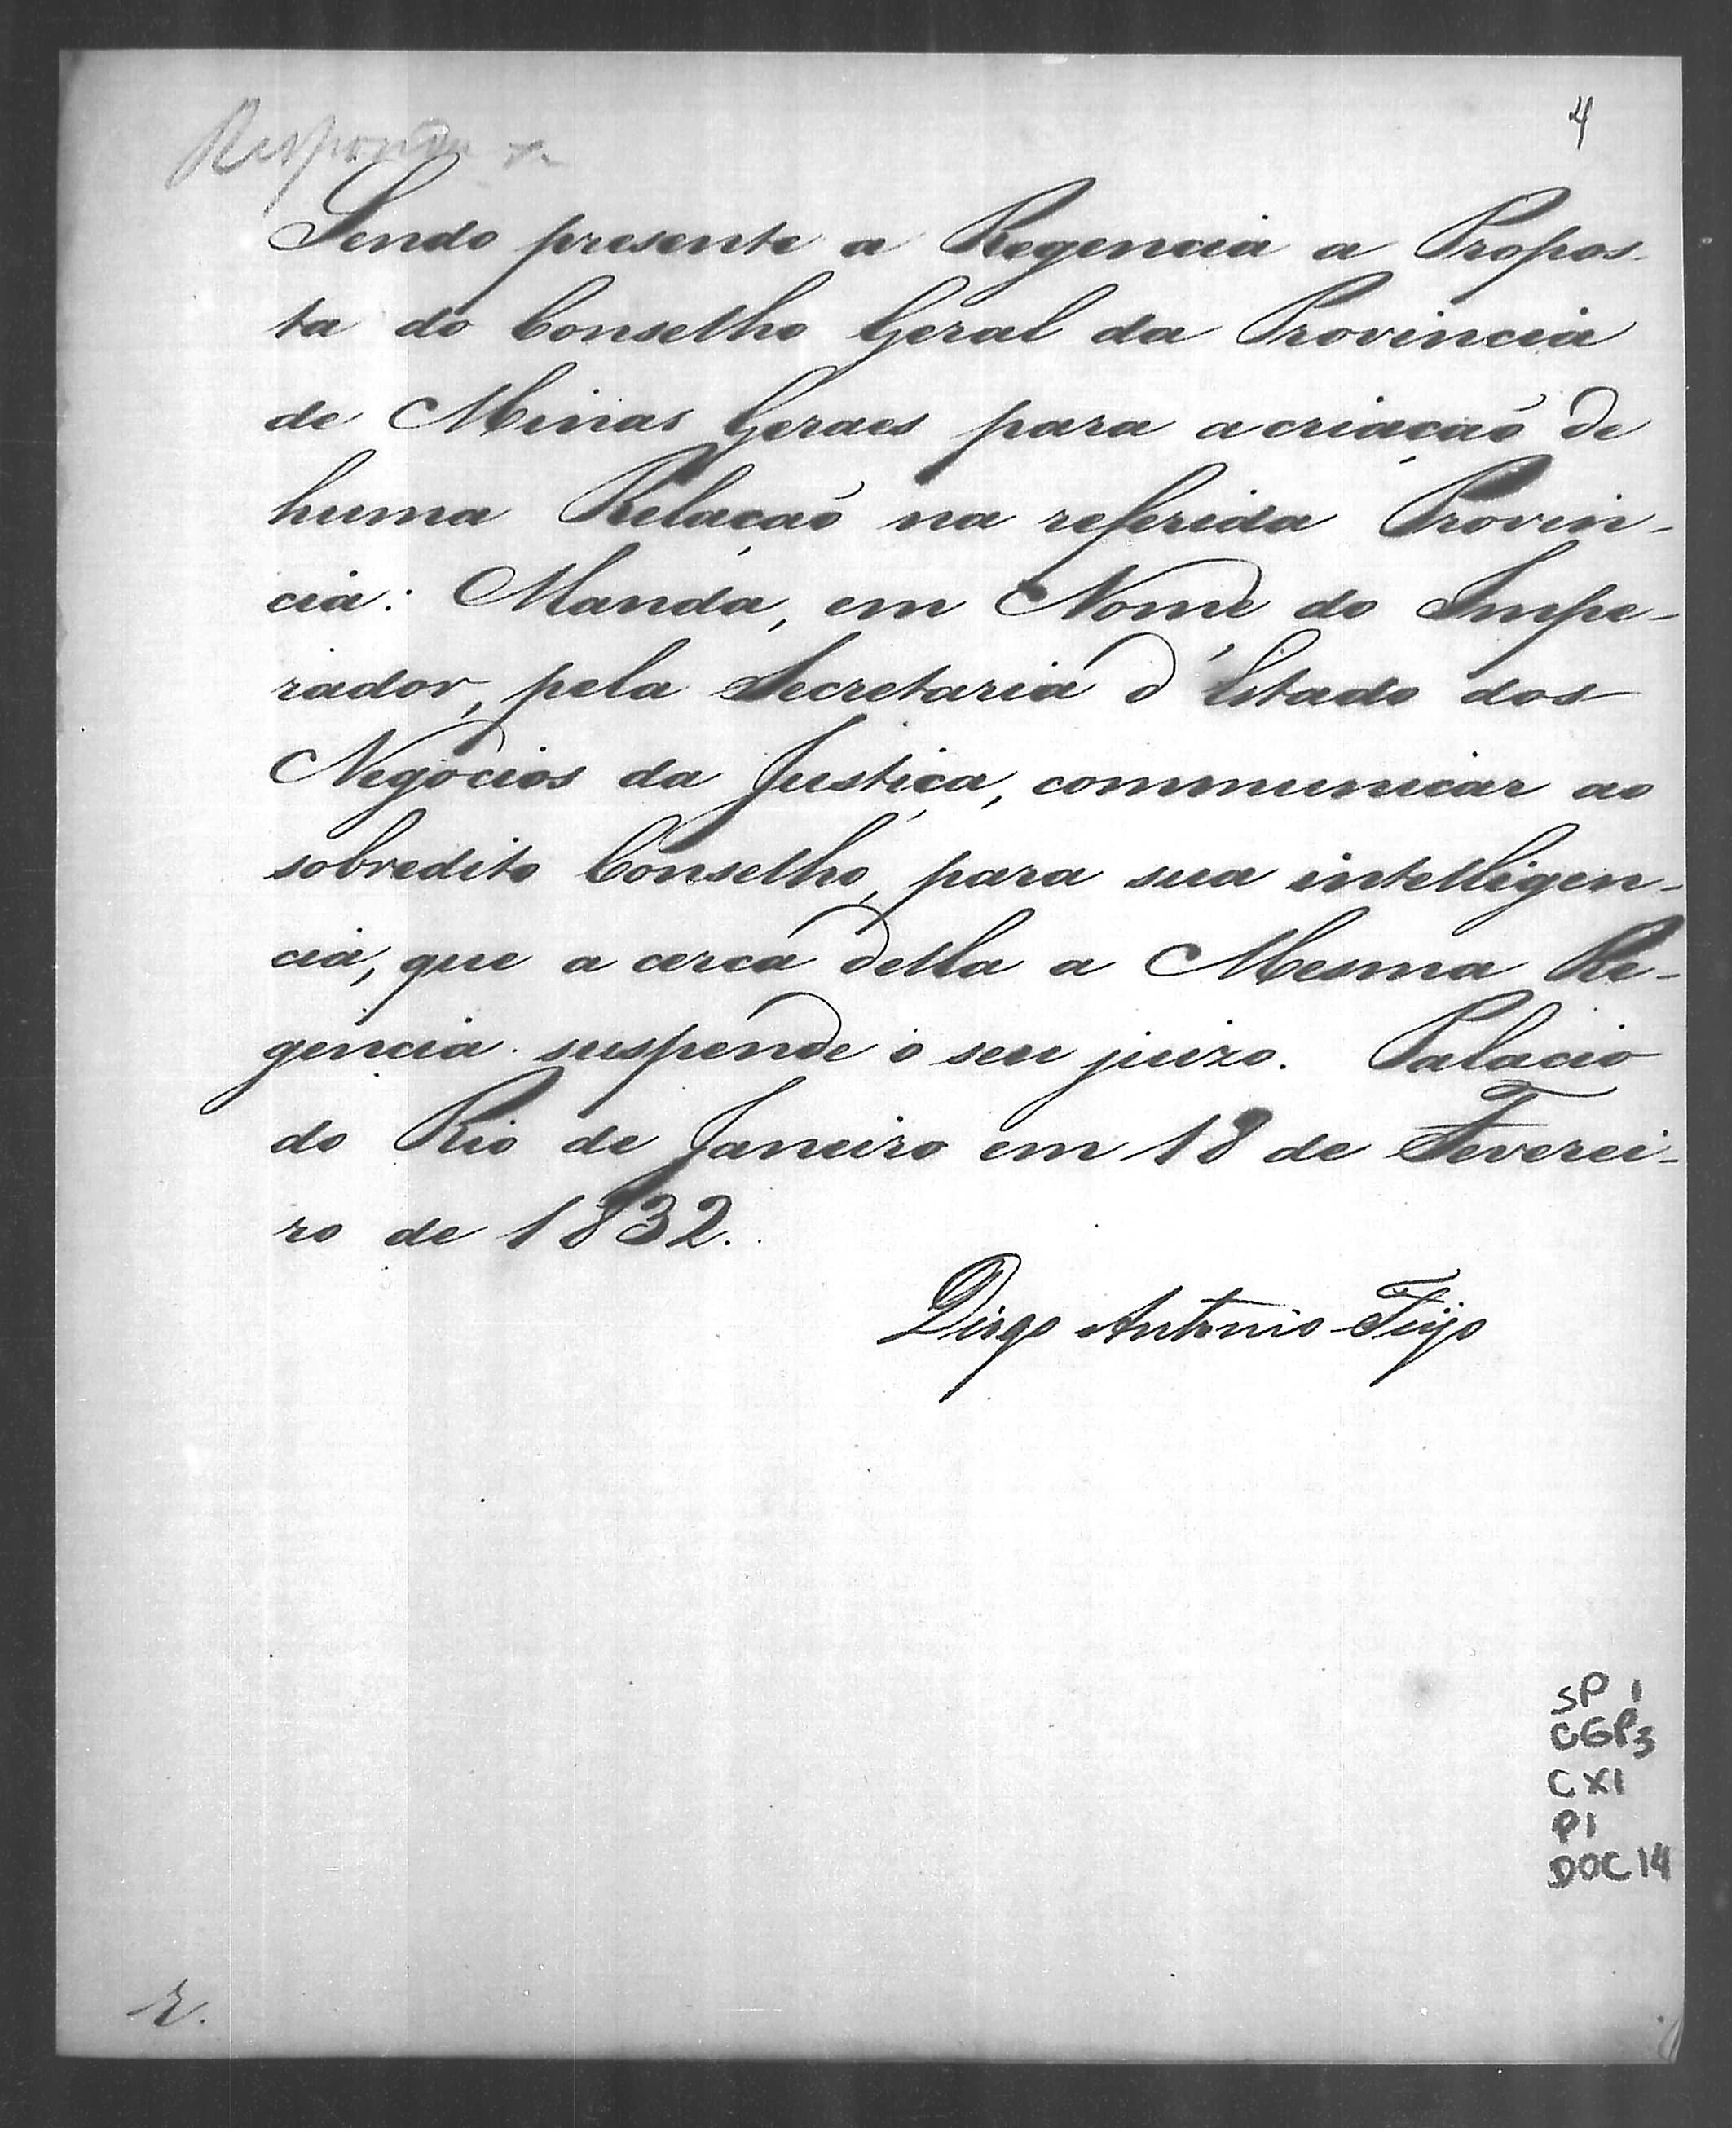 4
Sendo presente a Regencia a Propos-
ta do Conselho Geral da Provincia
de Minas Geraes para a criação de
huma Relação na referida Provin-
cia: Manda, em Nome do Impe-
rador, pela Secretaria d'Estado dos
Negocios da Justiça, communicar ao
sobredito Conselho, para sua intelligen-
cia, que a cerca della a Mesma Re-
gencia suspende o seu juizo. Palacio
do Rio de Janeiro em 18 de Feverei-
ro de 1832.
Diogo Antonio Feijo
SP 1
CGP3
CX1
P1
DOC 14